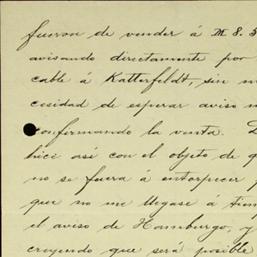 fueron de vender á M. 8.5
avisando directamente por
cable á Katterfeldt, sin
cesidad de esperar aviso
confirmando la venta.
hice así con el objeto de
no se fuera á entorpecer
que no me llegase á
el aviso de Hamburgo, y
creyendo que será posible